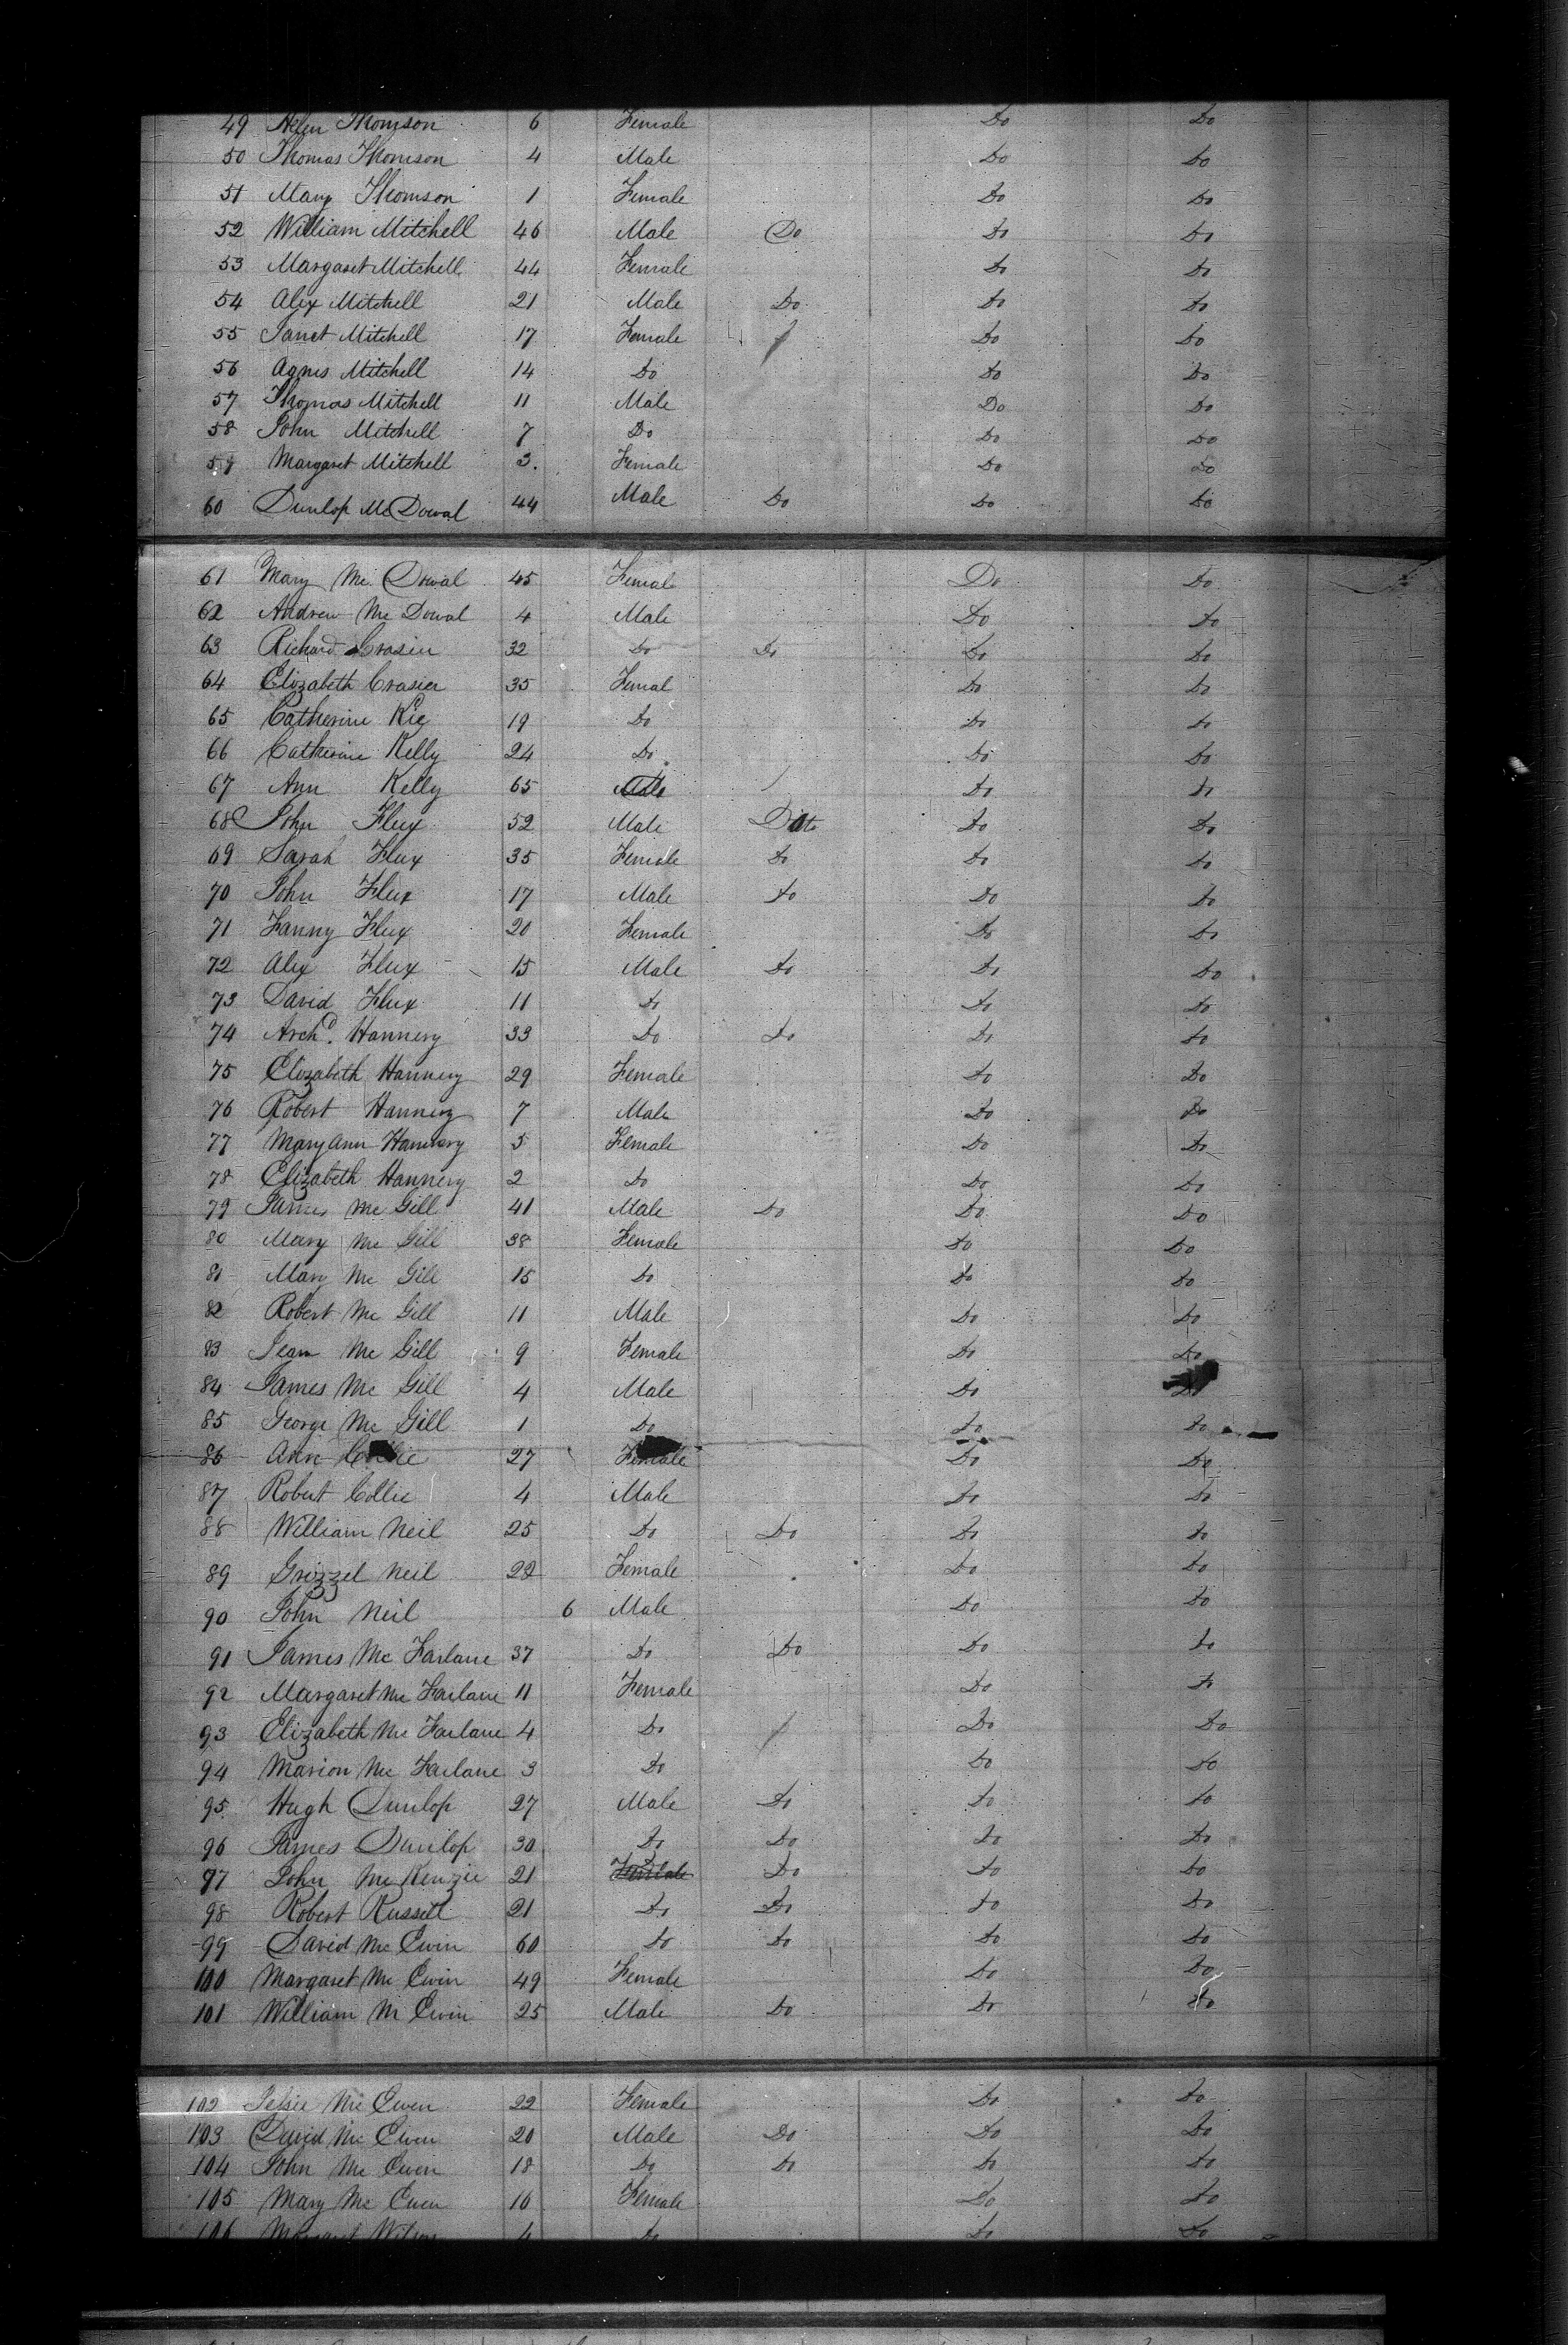 49 Helen Thomson 6 Female Do Do
50 Thomas Thomson 4 Male Do Do
51 Mary Thomson 1 Female Do Do
52 William Mitchell 46 Male Do Do Do
53 Margaret Mitchell 44 Female Do Do
54 Alex Mitchell 21 Male Do Do Do
55 Janet Mitchell 17 Female Do Do
56 Agnes Mitchell 14 Do Do Do
57 Thomas Mitchell 11 Male Do Do
58 John Mitchell 7 Do Do Do
59 Margaret Mitchell 3. Female Do Do
60 Dunlop McDowal 44 Male Do Do Do
61 Mary Mc Dowal 45 Femal Do Do
62 Andrew Mc Dowal 4 Male Do Do
63 Richard Crasier 32 Do Do Do Do
64 Elizabeth Crasier 35 Femal Do Do
65 Catherine 19 Do Do Do
66 Catherine Kelly 24 Do Do Do
67 Ann Kelly 65 Do Do
68 John Flux 52 Male Ditto Do Do
69 Sarah Flux 35 Female Do Do Do
70 John Flux 17 Male Do Do Do
71 Fanny Flux 20 Female Do Do
72 Alex Flux 15 Male Do Do Do
73 David Flux 11 Do Do Do
74 Archd. Hannery 33 Do Do Do Do
75 Elizabeth Hannery 29 Female Do Do
76 Robert Hannery 7 Male Do Do
77 Mary Ann Hannery 5 Female Do Do
78 Elizabeth Hannery 2 Do Do Do
79 James Mc Gill 41 Male Do Do Do
80 Mary Mc Gill 38 Female Do Do
81 Mary Mc Gill 15 Do Do Do
82 Robert Mc Gill 11 Male Do Do
83 Jean Mc Gill 9 Female Do Do
84 James Mc Gill 4 Male Do Do
85 George Mc Gill 1 Do Do Do
86 Ann Collie 27 Female Do Do
87 Robert Collie 4 Male Do Do
88 William Neil 25 Do Do Do Do
89 Grizzel Neil 22 Female Do Do
90 John Neil 6 Male Do Do
91 James Mc Farlane 37 Do Do Do Do
92 Margaret Mc Farlane 11 Female Do Do
93 Elizabeth Mc Farlane 4 Do Do Do
94 Marion Mc Farlane 3 Do Do Do
95 Hugh Dunlop 27 Male Do Do Do
96 James Dunlop 30 Do Do Do Do
97 John Mc Kenzie 21 Female Do Do Do
98 Robert Russell 21 Do Do Do Do
99 David Mc Ewin 60 Do Do Do Do
100 Margaret Mc Ewin 49 Female Do Do
101 William M Ewin 25 Male Do Do Do
102 Jessie Mc Ewen 22 Female Do Do
103 David Mc Ewen 20 Male Do Do Do
104 John Mc Ewen 18 Do Do Do Do
105 Mary Mc Ewen 16 Female Do Do
106 Margaret Wilson 4 Do Do Do